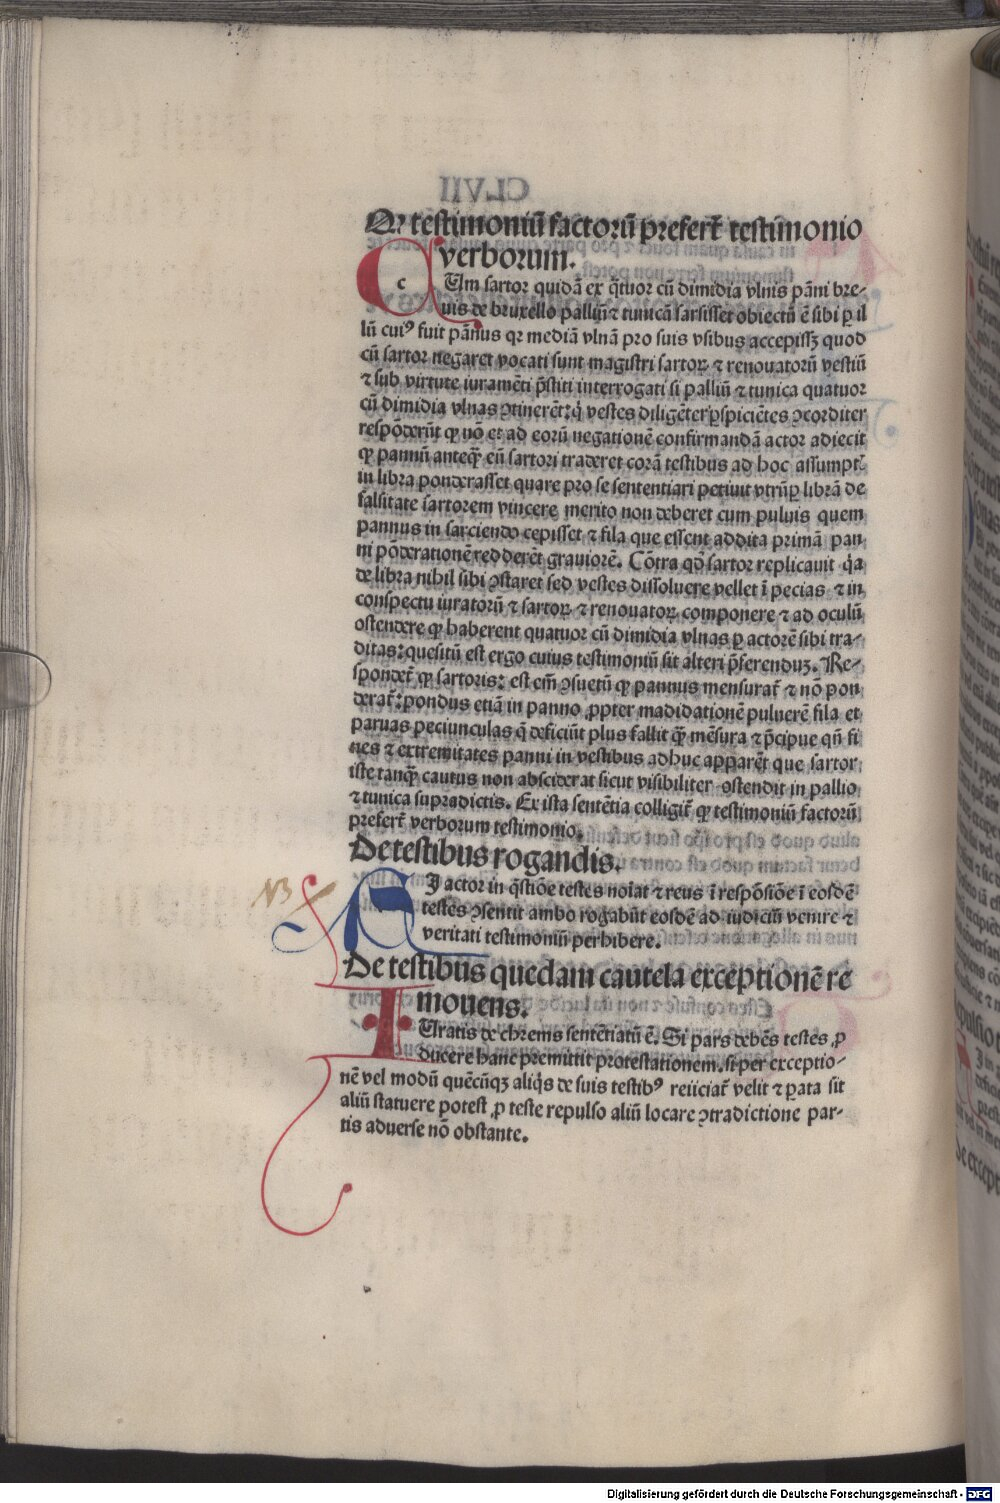 Qꝛ testimoniū factoꝝ prefert᷑ testimonio
verborum.
CUm sartor quidā ex q̄tuor cū dimidia vlnis pāni bre-
uis de bruxello palliū ⁊ tunicā sarsisset obiectū ē sibi ꝑ il
lū cuiꝰ fuit pānus qꝛ mediā vlnā pro suis vsibus accepissꝫ quod
cū sartor negaret vocati sunt magistri sartoꝝ ⁊ renouatorū vestiū
⁊ sub virtute iuramēti p̄stiti interrogati si palliū ⁊ tunica quatuor
cū dimidia vlnas ↄtinerēt: q̄ vestes diligēter ꝑspiciētes ↄcorditer
respōderūt ꝙ nō et ad eorū negationē confirmandā actor adiecit
ꝙ pannū anteq̄ꝫ eū sartori traderet corā testibus ad hoc assumpt᷑
in libra ponderasset quare pro se sententiari petiuit vtrūꝙ librā de
falsitate sartorem vincere merito non deberet cum puluis quem
pannus in sarciendo cepisset ⁊ fila que essent addita primā pan
ni pōderationē redderēt grauiorē. Cōtra qd̄ sartor replicauit q̄a
de libra nihil sibi ↄstaret sed vestes dissoluere vellet ī pecias ⁊ in
conspectu iuratorū ⁊ sartoꝝ ⁊ renouatoꝝ componere ⁊ ad oculū
ostendere ꝙ haberent quatuor cū dimidia vlnas ꝑ actorē sibi tra-
ditas: quesitū est ergo cuius testimoniū sit alteri p̄ferenduꝫ. Re-
spondet᷑ ꝙ sartoris: est em̄ ↄsuetū ꝙ pannus mensurat᷑ ⁊ nō pon
derat᷑: pondus etiā in panno ꝓpter madidationē puluerē fila et
paruas peciunculas q̄ deficiūt plus fallit q̄ꝫ mēsura ⁊ p̄cipue qn̄ fi
nes ⁊ extremitates panni in vestibus adhuc apparēt que sartor
iste tanq̄ꝫ cautus non absciderat sicut visibiliter ostendit in pallio
⁊ tunica supradictis. Ex ista sentētia colligit᷑ ꝙ testimoniū factorū
prefert᷑ verborum testimonio.
De testibus rogandis.
NB
SI actor in q̄stiōe testes noīat ⁊ reus ī respōsiōe ī eosdē
testes ↄsentit ambo rogabūt eosdē ad iudiciū venire ⁊
veritati testimoniū perhibere.
De testibus quedam cautela exceptionē re
mouens.
IUratis de chrems sentētiatū ē. Si pars debēs testes ꝓ
ducere hanc premittit protestationem. si per exceptio-
nē vel modū quēcūqꝫ aliq̄s de suis testibꝰ reiiciat᷑ velit ⁊ ꝑata sit
aliū statuere potest ꝓ teste repulso aliū locare ↄtradictione par-
tis aduerse nō obstante.
Digitalisierung gefördert durch die Deutsche Forschungsgemeinschaft - DFG